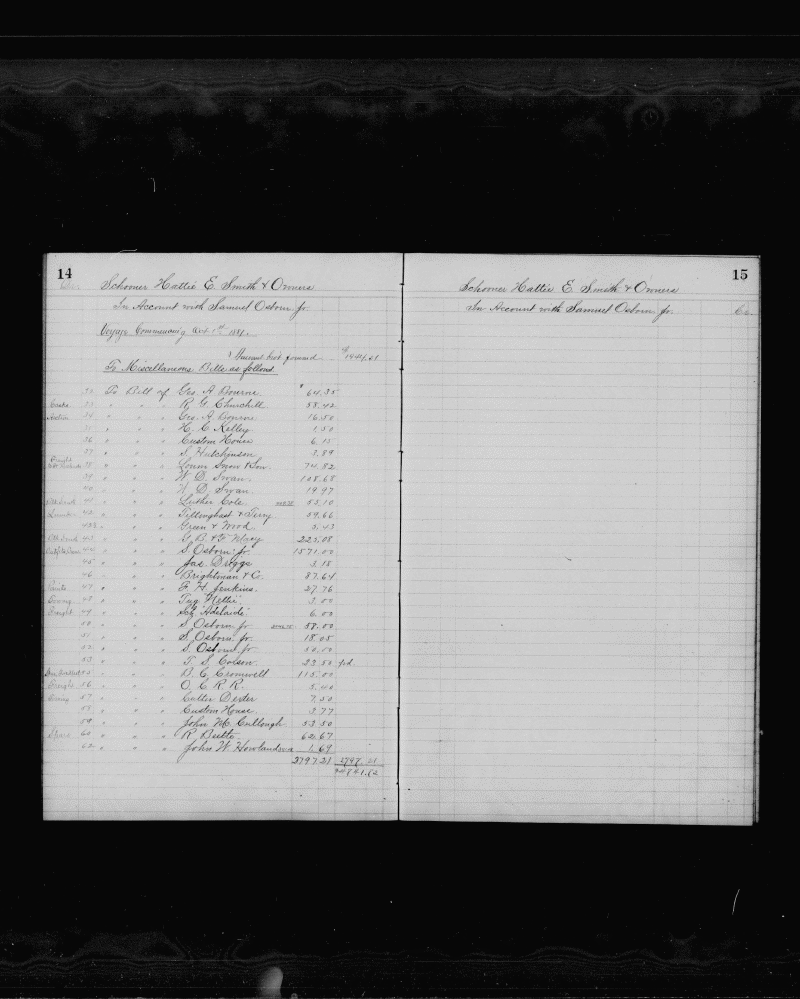 14
Schooner Hattie E. Smith & Owners
In Account with Samuel Osborn Jr.
Voyage Commencing Oct 1st 1881.
Amount bro't forward $
To Miscellaneous Bills as follows
To Bill of Geo. A Bourne $ 64.35
33 " " " R. G. Churchill 58.42
34 " " " Geo. A Bourne 16.50
35 " " " H. C Kelley 1.50
36 " " " Custom House 6.15
37 " " " S. Hutchinson 3.89
Freight 38 " " " Snow & Son 74.82
39 " " " W. D. Swan 108.68
40 " " " W. D. Swan 19.97
41 " " " Luther Cole 53.10
42 " " " Tillinghast & Terry 59.66
" " " Green & Wood 3.43
43 " " " G B & Macy 225.08
44 " " " S. Osborn Jr. 1571.00
45 " " " Jas. Driggs 3.18
46 " " " Brightman & Co. 87.64
Paints 47 " " " F. H. Jenkins 27.76
Towing 48 " " " Tug Nellie 3.00
Freight 49 " " " Sch Adelaide 6.00
50 " " " S. Osborn Jr 58.00
51 " " " S. Osborn Jr 18.05
52 " " " S. Osborn Jr 50.00
53 " " " T. S. Colson 23.50
" " " B. C. Cromwell 115.00
Freight 56 " " " O. C R. R. 3.40
Towing 57 " " " Cutler Dexter 7.50
58 " " " Custom House 3.77
59 " " " John McCullough 53.50
Spars 60 " " " R. Butts 62.67
62 " " " John W. Howland 1.69
2797.21 2797.21
15
Schooner Hattie E. Smith & Owners
In Account with Samuel Osborn Jr. Cr.